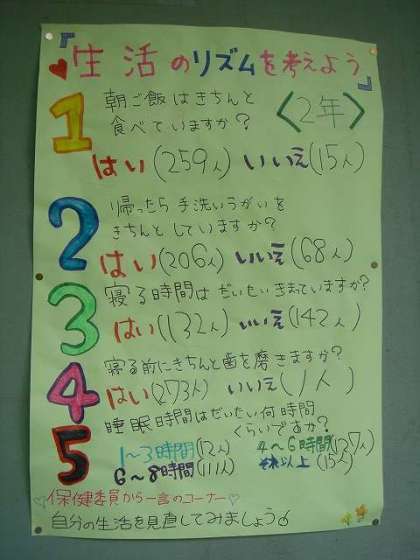 『生活のリズムを考えよう』
1 朝ご飯はきちんと
食べていますか?
〈2年〉
はい(259人) いいえ(15人)
2 帰ったら手洗いうがいを
きちんとしていますか?
はい(206人) いいえ(68人)
3 寝る時間はだいたいきまっていますか?
はい(132人) いいえ(142人)
4 寝る前にきちんと歯を磨きますか?
はい(273人) いいえ(1人)
5 睡眠時間はだいたい何時間
くらいですか?
1〜3時間(12人) 4〜6時間(137人)
6〜8時間(111人) それ以上(15人)
♡保健委員から一言のコーナー♡
自分の生活を見直してみましょう